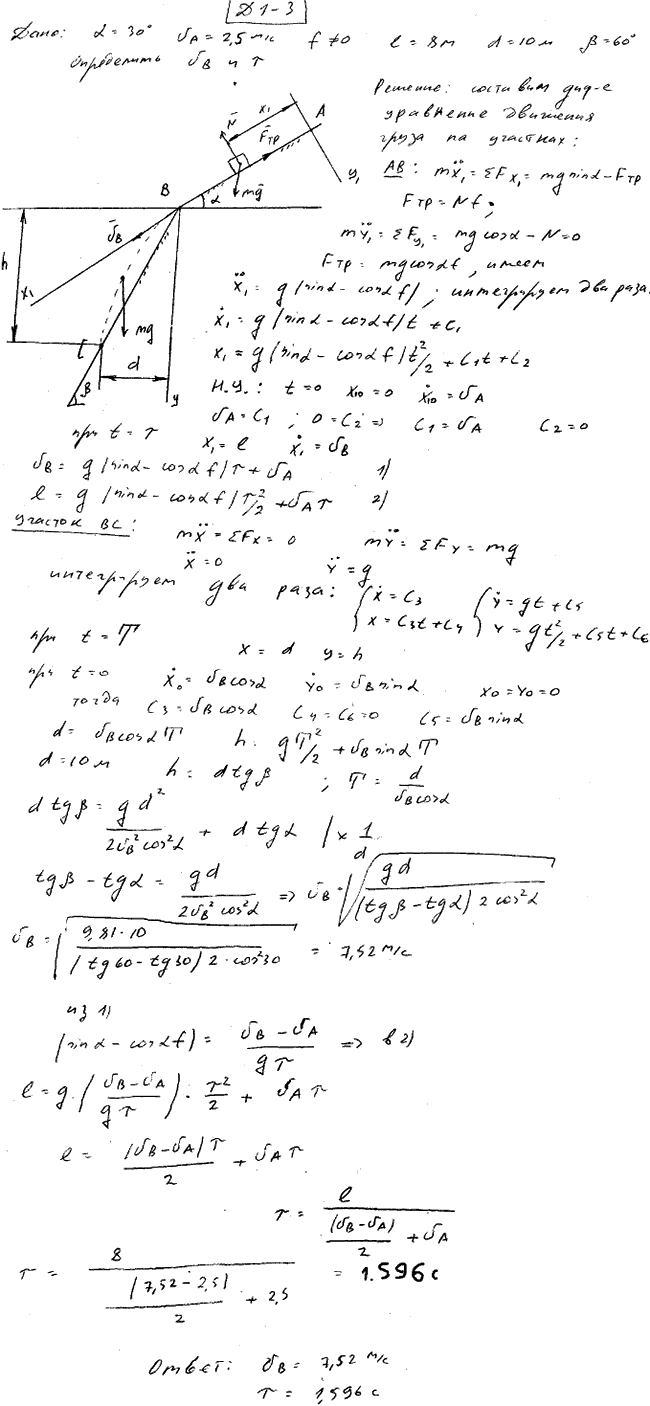 Д1-3
Дано: α = 30° υA = 2,5 м/с f ≠ 0 l = 8м d = 10 м β = 60°
Определить υB и τ
Решение: составим диф-е
уравнение движения
груза на участках:
AB: mẍ₁ = ΣFx₁ = mg sinα - Fтр
Fтр = Nf;
mÿ₁ = ΣFy₁ = mg cosα - N = 0
Fтр = mg cosα f, имеем
N̄ x₁ F̄тр A
y₁
B α mḡ
ῡB
h x₁
mg
C d
β y
ẍ₁ = g (sinα - cosα f); интегрируем два раза:
ẋ₁ = g (sinα - cosα f) t + C₁
x₁ = g (sinα - cosα f) t²/2 + C₁t + C₂
Н.У.: t = 0 x₁₀ = 0 ẋ₁₀ = υA
υA = C₁ ; 0 = C₂ => C₁ = υA C₂ = 0
при t = τ x₁ = l ẋ₁ = υB
υB = g (sinα - cosα f) τ + υA 1)
l = g (sinα - cosα f) τ²/2 + υA τ 2)
участок BC: mẍ = ΣFx = 0 mÿ = ΣFy = mg
ẍ = 0 ÿ = g
интегрируем два раза: { ẋ = C₃ { ẏ = gt + C₅
x = C₃t + C₄ y = gt²/2 + C₅t + C₆
при t = T x = d y = h
при t = 0 ẋ₀ = υB cosα ẏ₀ = υB sinα x₀ = y₀ = 0
тогда C₃ = υB cosα C₄ = C₆ = 0 C₅ = υB sinα
d = υB cosα T h = gT²/2 + υB sinα T
d = 10 м h = d tgβ ; T = d / υB cosα
d tgβ = g d² / 2υB² cos²α + d tgα | × 1/d
tgβ - tgα = gd / 2υB² cos²α => υB = √(gd / (tgβ - tgα) 2 cos²α)
υB = √(9,81·10 / (tg60 - tg30) 2·cos²30) = 7,52 м/с
из 1)
(sinα - cosα f) = υB - υA / gτ => в 2)
l = g·(υB - υA / gτ)·τ²/2 + υA τ
l = (υB - υA) τ / 2 + υA τ
τ = l / ((υB - υA) / 2 + υA)
τ = 8 / ((7,52 - 2,5) / 2 + 2,5) = 1.596 с
Ответ: υB = 7,52 м/с
τ = 1,596 с